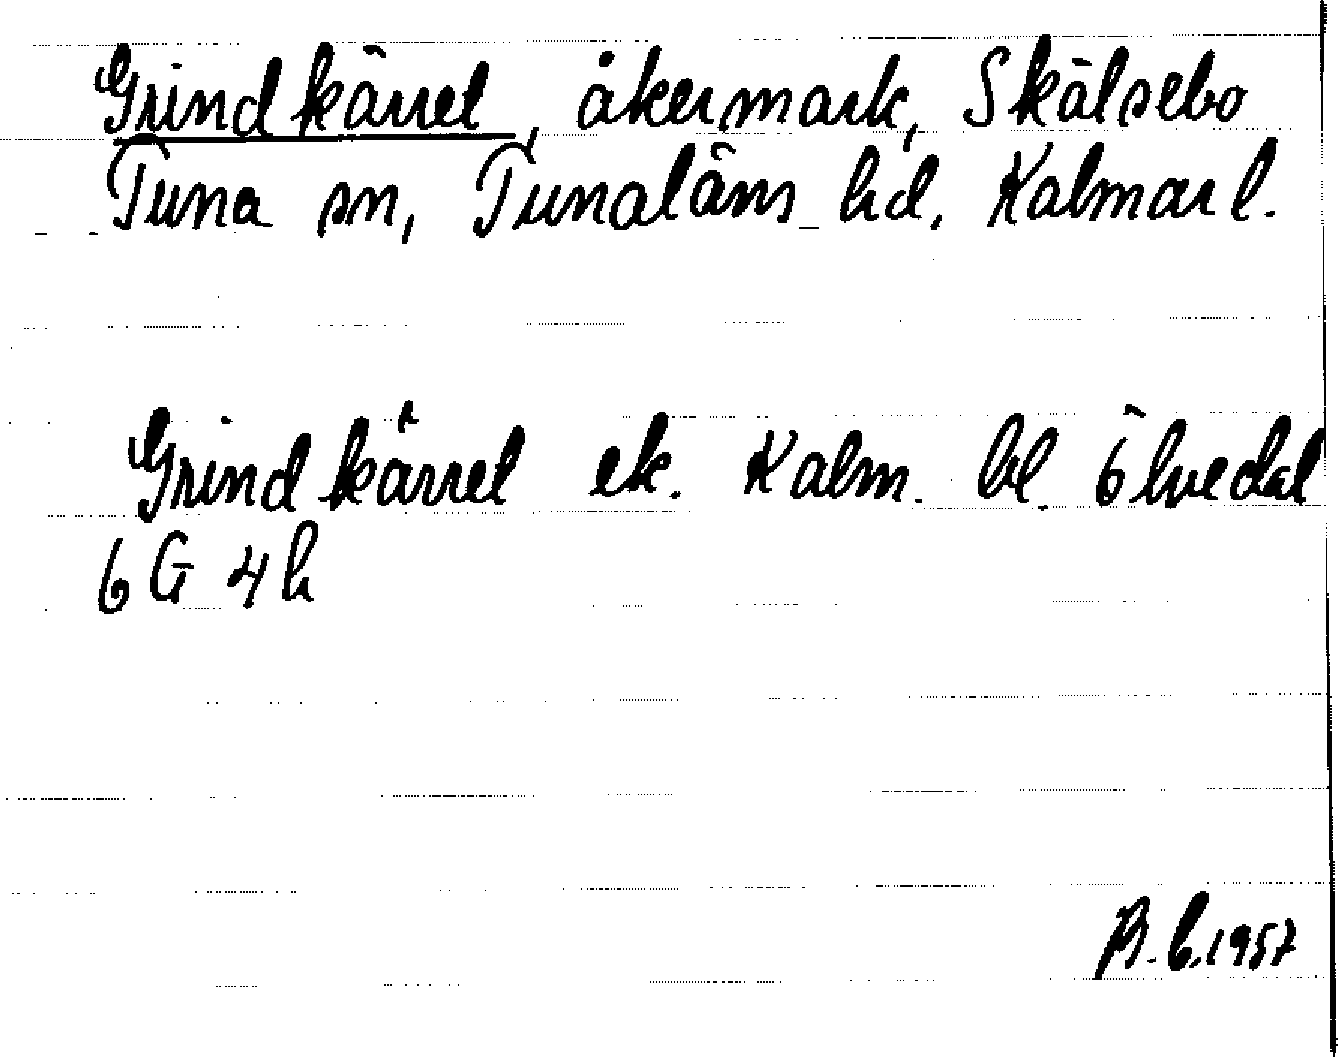 Grindkärret, åkermark, Skälsebo
Tuna sn, Tunaläns hd, Kalmar l.
Grindkärret ek. Kalm. bl Ölvedal
6 G 4 h
B. G. 1957